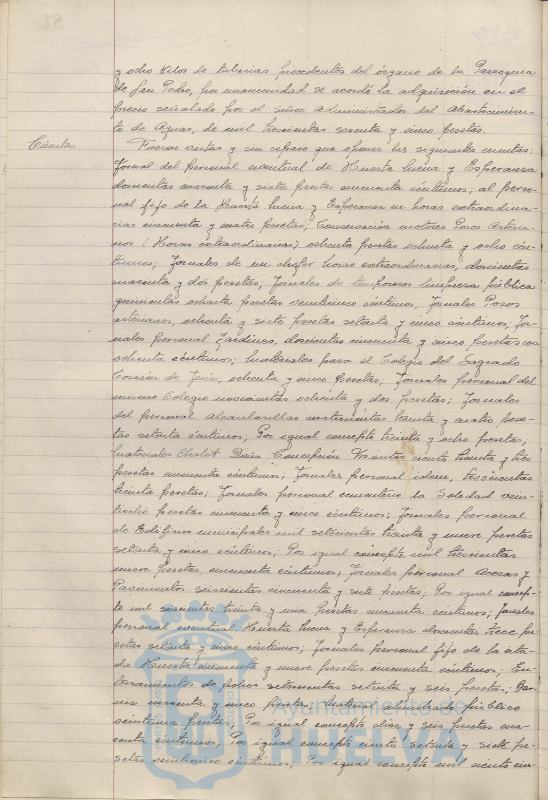 y ocho kilos de tuberias procedentes del órgano de la Parroquia
de San Pedro, por unanimidad se acordó la adquisición en el
precio señalado por el señor Administrador del Abastecimien-
to de Aguas, de mil trescientas sesenta y cinco pesetas.
Cuentas
Fueron vistas y sin reparo que oponer las siguientes cuentas:
Jornal del personal eventual de Huerta Mena y Esperanza
doscientas cuarenta y siete pesetas cincuenta céntimos; al perso-
nal fijo de la Huerta Mena y Esperanza en horas extraordina-
rias cincuenta y cuatro pesetas; Conservación motores Pozo Artesia-
nos (Horas extraordinarias) ochenta pesetas ochenta y ocho cén-
timos; Jornales de un chofer horas extraordinarias, doscientas
cuarenta y dos pesetas, Jornales de temporeros limpieza pública
quinientas ochenta pesetas veinticinco céntimos, Jornales Pozos
artesianos, ochenta y siete pesetas setenta y cinco céntimos, Jor-
nales personal jardines, doscientas cincuenta y cinco pesetas con
ochenta céntimos; materiales para el Colegio del Sagrado
Corazón de Jesús, ochenta y cinco pesetas, Jornales personal del
mismo Colegio novecientas ochenta y dos pesetas; Jornales
del personal alcantarillas cuatrocientas treinta y cuatro pese-
tas setenta céntimos, Por igual concepto treinta y ocho pesetas;
materiales Chalet Doña Concepción ciento treinta y tres
pesetas cincuenta céntimos; Jornales personal idem, trescientas
treinta pesetas; Jornales personal cementerio la Soledad vein-
pesetas cincuenta y cinco céntimos; Jornales personal
de Edificios municipales mil setecientas treinta y nueve pesetas
setenta y cinco céntimos; Por igual concepto mil trescientas
nueve pesetas, cincuenta céntimos; Jornales personal Aceras y
Pavimentos seiscientas cincuenta y siete pesetas; Por igual concep-
to mil treinta y una pesetas cincuenta céntimos; Jornales
personal eventual Huerta Mena y Esperanza doscientas trece pe-
setas setenta y cinco céntimos; Jornales personal fijo de la cita-
da Huerta cincuenta y nueve pesetas cincuenta céntimos; En-
terramientos de pobres setecientas setenta y seis pesetas;
cuarenta y cinco pesetas, material alumbrado público
pesetas, Por igual concepto diez y seis pesetas cua-
renta céntimos, Por igual concepto ciento setenta y siete pe-
setas veinticinco céntimos, Por igual concepto mil ciento cin-
Ayuntamiento de
HUELVA